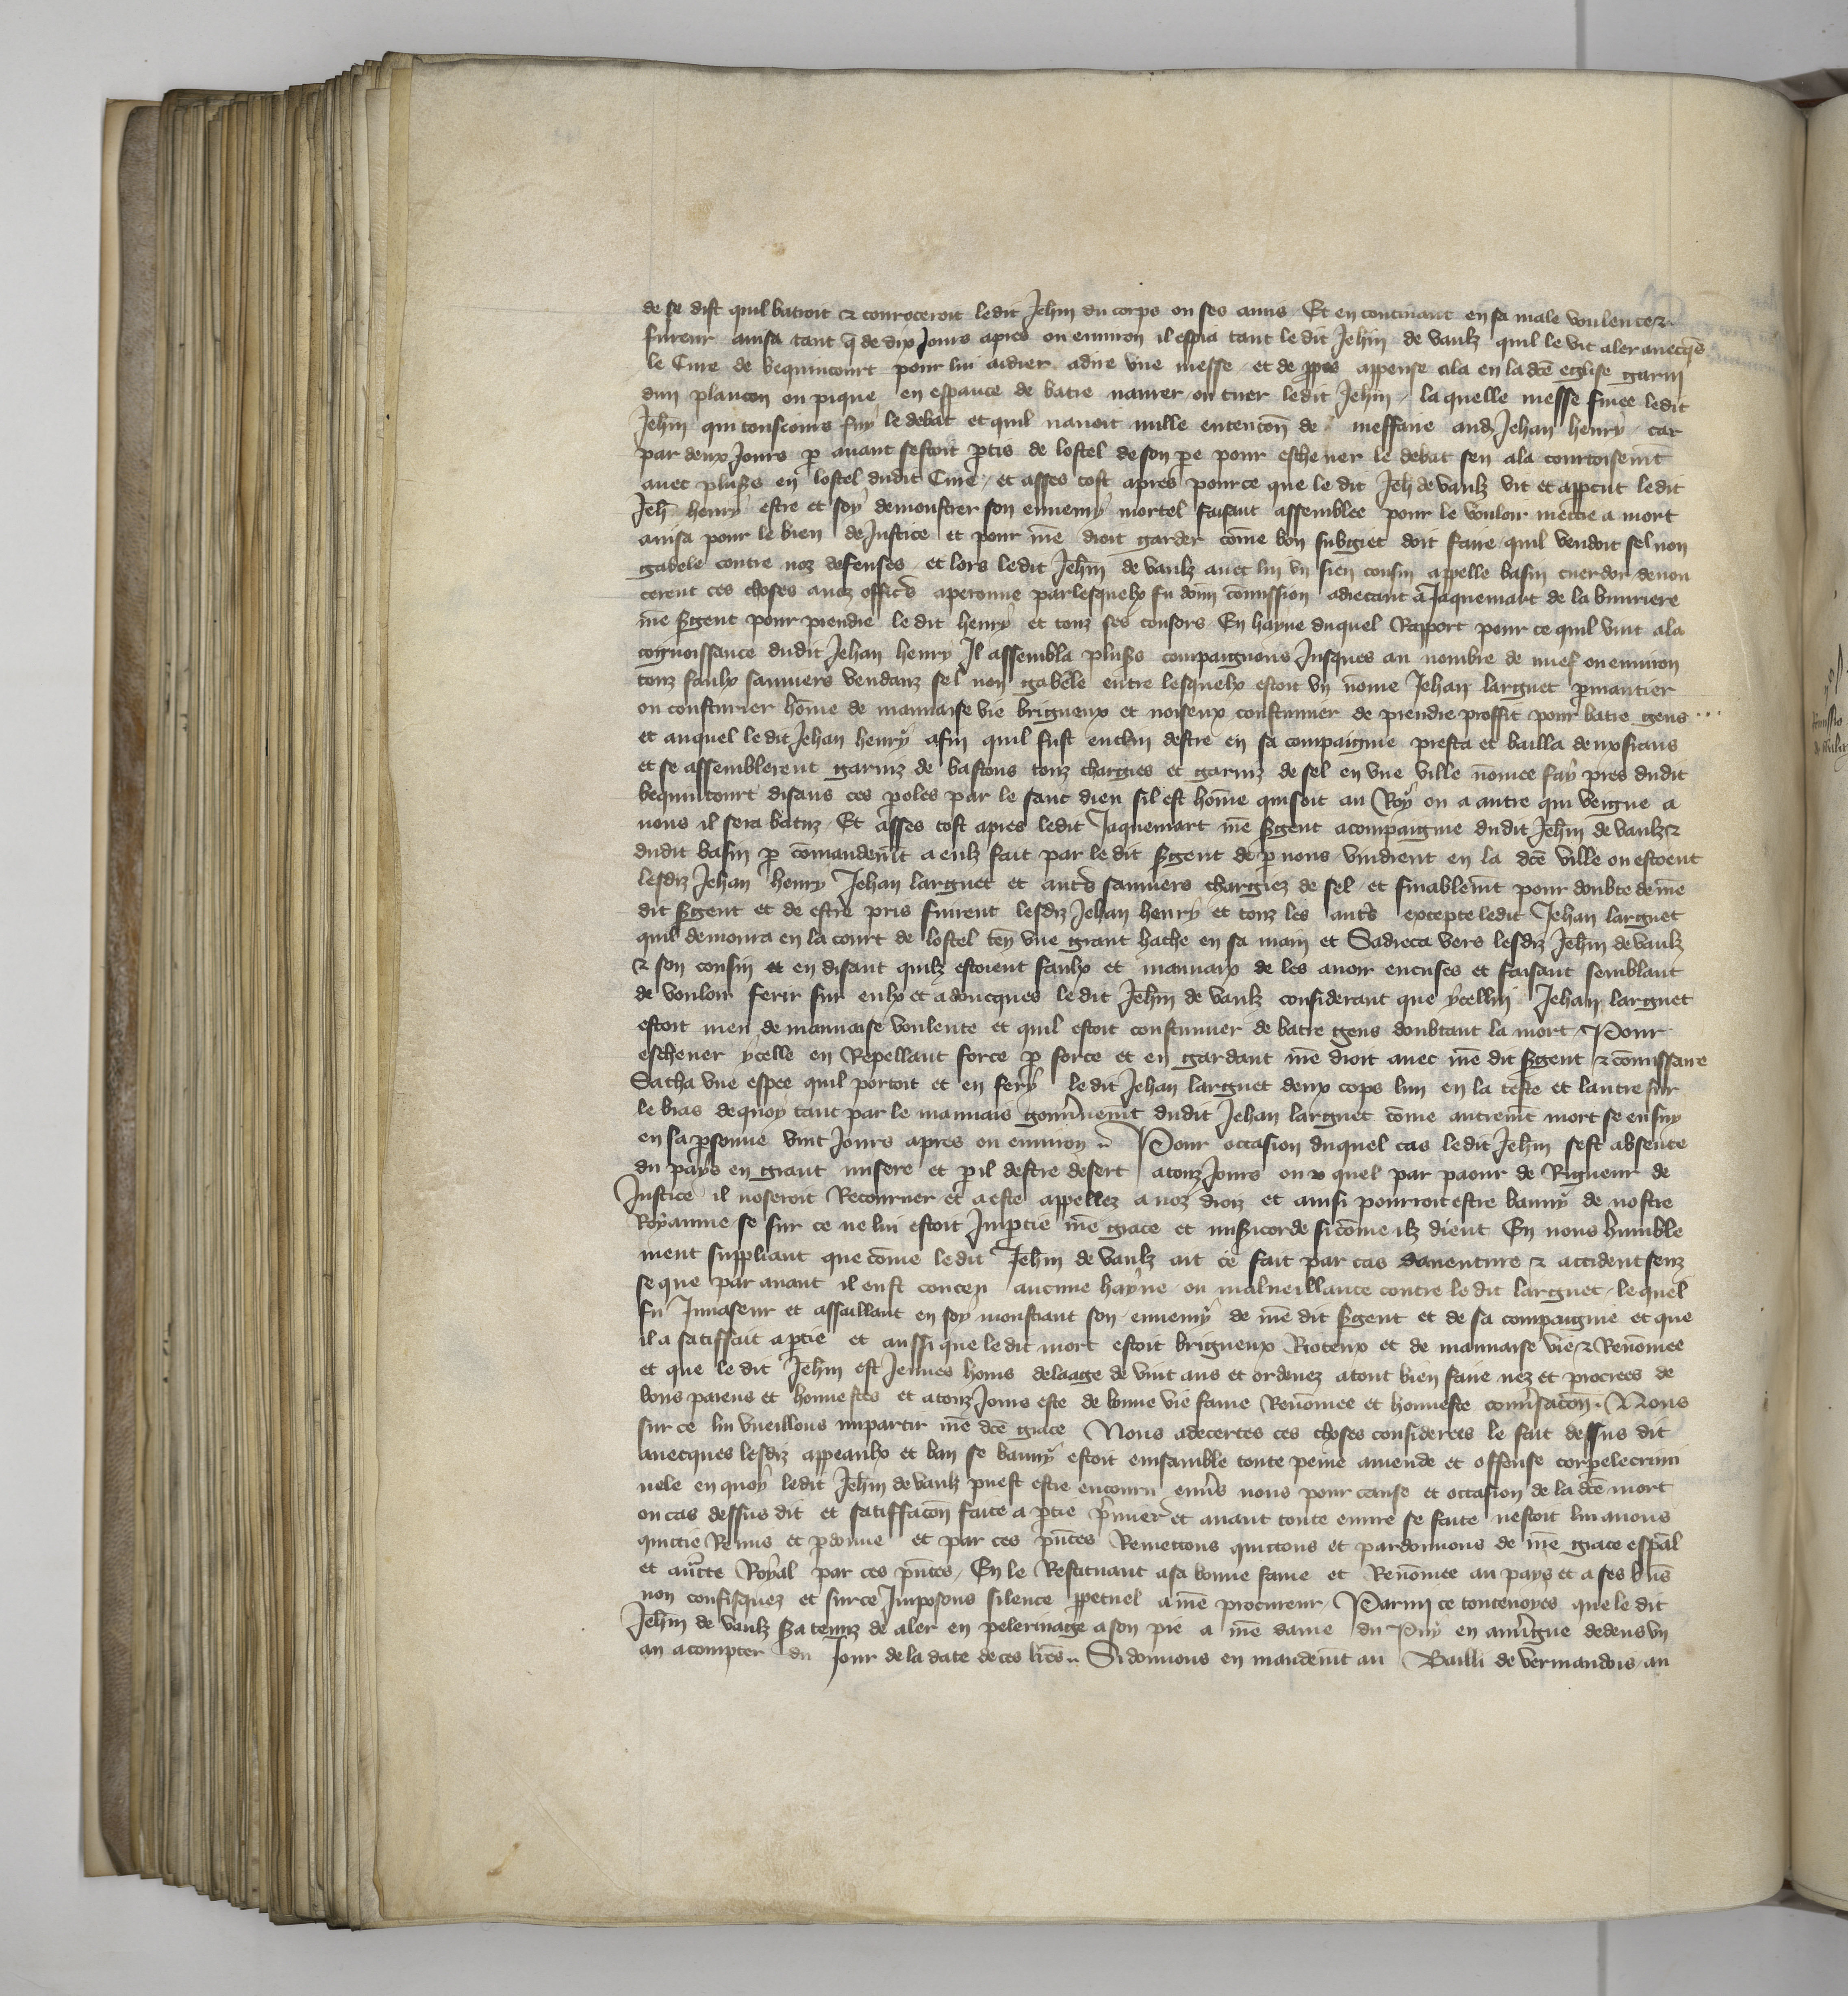 de se dist quil batroit et courroceroit ledit Jehin du corps ou ses amis Et en continuant en sa male voulente et
fureur avisa tant q̃ de dix Jours apres ou environ il espia tant ledit Jehin de vaulz quil le vit aler avecq̃s
le Cure de bequincourt pour lui aidier a dire une messe et de ppos appense ala en lad̃ce eglise garni
dun plancon ou pique en espance de batre navrer ou tuer ledit Jehin laquelle messe finee ledit
Jehin qui tousiours fuy le debat et quil navoit nulle entencon de meffaire aud Jehan henry car
par deux Jours p avant sestoit ptis de lostel de son pe pour eschever le debat sen ala courtoisem̃t
avec plus̃s en lostel dudit Cure et asses tost apres pource que le dit Jeh̃ de vaulz vit et apperut ledit
Jeh̃ henry estre et soy demonstrer son ennemy mortel faisant assemblee pour le vouloir mettre a mort
avisa pour le bien de Justice et pour n̄re droit garder cōme bon subgiet doit faire quil vendoit sel non
gabele contre noz defenses et lors ledit Jeh̃in de vaulz avec lui un sien cousin appelle basin cuerdor denon
cerent ces choses a noz offic̃s a peronne par lesquelx fu donn cōmission adrecant a Jaquemart de la buurriere
n̄re s̃gent pour prendre le dit henry et touz ses consors En hayne duquel Rapport pour ce quil vint a la
cognoissance dudit Jehan henry Il assembla plus̃s compaignons Jusques au nombre de nuef ou environ
touz faulx sauniers vendanz sel non gabele entre lesquelx estoit un nōme Jehan larguet p̱mantier
ou cousturier hōme de mauvaise vie brigueux et noiseux coustumier de prendre proffit pour batre gens ...
et auquel ledit Jehan henry afin quil fust enclin destre en sa compaignie presta et bailla deux frans
et se assemblerent garniz de bastons touz chargies et garniz de sel en une ville nōmee fay pres dudit
bequincourt disans ces p̱oles par le sanc dieu sil est hōme qui soit au Roy ou a autre qui viengne a
nous il sera batuz Et asses tost apres ledit Jaquemart n̄re s̃gent acompaignie dudit Jeh̃in de vaulz et
dudit basin p̱ cōmandem̃t a eulz fait par ledit s̃gent de p̱ nous vindrent en la dc̃e ville ou estoient
lesdiz Jehan henry Jehan larguet et aut̃s sauniers chargiez de sel et finablem̃t pour doubte de n̄re
dit s̃gent et de estre pris fuirent lesdiz Jehan henry et touz les aut̃s excepte ledit Jehan larguet
quil demoura en la court de lostel ten̄ une grant hache en sa main et Sadreca vers lesdiz Jeh̃in de vaulz
et son cousin et en disant quilz estoient faulx et mauvaix de les avoir encuses et faisant semblant
de vouloir ferir sur eulx et adoncques ledit Jeh̃in de vaulz considerant que ycellui Jehan larguet
estoit meu de mauvaise voulente et quil estoit coustumier de batre gens doubtant la mort Pour
eschever ycelle en Repellant force p̱ force et en gardant n̄re droit avec n̄re dit s̃gent et cōmissaire
Sacha une espee quil portoit et en fery ledit Jehan larguet deux cops lun en la teste et lautre sur
le bras de quoy tant par le mauvais gouv̄nem̃t dudit Jehan larguet cōme autrem̃t mort se ensuy
en sa p̱sonne vint Jours apres ou environ Pour occasion duquel cas ledit Jeh̃in sest absente
du pays en grant misere et p̱il destre desert a touz Jours ou quel par paour de Rigueur de
Justice il noseroit Retourner et a este appellez a noz droiz et ainsi pourroit estre banny de nostre
Royaume se sur ce ne lui estoit Imp̱tie n̄re grace et mis̃icorde si cōme ilz dient En nous humble
ment suppliant que cōme ledit Jeh̃in de vaulz ait ce fait par cas daventure et accident senz
se que par avant il eust conceu aucune hayne ou malveillance contre ledit larguet lequel
fu Invaseur et assaillant en soy monstrant son ennemy de n̄re dit s̃gent et de sa compaignie et que
il a satiffait a p̱tie et aussi que ledit mort estoit brigueux Rioteux et de mauvaise vie et Renōmee
et que le dit Jeh̃in est Jeunes homs de laage de vint ans et ordenez a tout bien faire nez et procrees de
bons parens et honnestes et a touz Jours este de bonne vie fame Renōmee et honneste conv̄sacōn Nous
sur ce lui vueillons impartir n̄re dc̃e grace Nous adecertes ces choses considerees le fait dessus dit
avecques lesdiz appeaulx et ban se banny estoit ensamble toute peine amende et offense corporele crimi
nele en quoy ledit Jeh̃in de vaulz puest estre encouru env̄s nous pour cause et occasion de la dc̃e mort
ou cas dessus dit et satiffacōn faicte a p̱tie p̃mier et avant toute euvre se faite nestoit lui avons
quictie Remis et p̱donne et par ces p̃ntes Remettons quictons et pardonnons de n̄re grace esp̃al
et auc̃te Royal par ces p̃ntes En le Restituant a sa bonne fame et Renōmee au pays et a ses biẽs
non confisquez et surce Imposons silence p̱petuel a n̄re procureur Parmi ce toutevoyes que le dit
Jeh̃in de vaulz s̃a tenuz de aler en pelerinage a son pie a n̄re dame du Puy en auv̄gne dedens un
an a compter du Jour de la date de ces lr̃es Si donnons en mandem̃t au Bailli de vermandois au